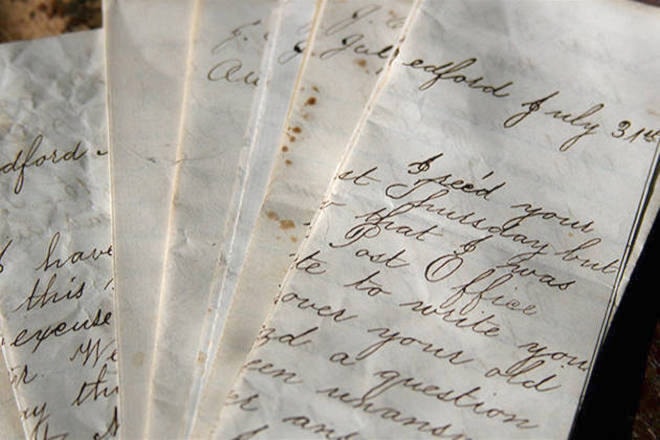 dford
I have
this
excuse
r. We
Au
Jul
edford July 31st
I rec'd your
st Thursday but
that I was
Post Office
te to write you
over your old
d a question
een unansw
er